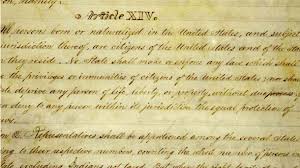 Article XIV.
All persons born or naturalized in the United States, and subject
jurisdiction thereof, are citizens of the United States and of the
they reside. No State shall make or enforce any law which shall
the privileges or immunities of citizens of the United States; nor shall
deprive any person of life, liberty, or property, without due process
deny to any person within its jurisdiction the equal protection of
laws.
Representatives shall be apportioned among the several States
to their respective numbers, counting the whole number of persons
State, excluding Indians not taxed. But when the